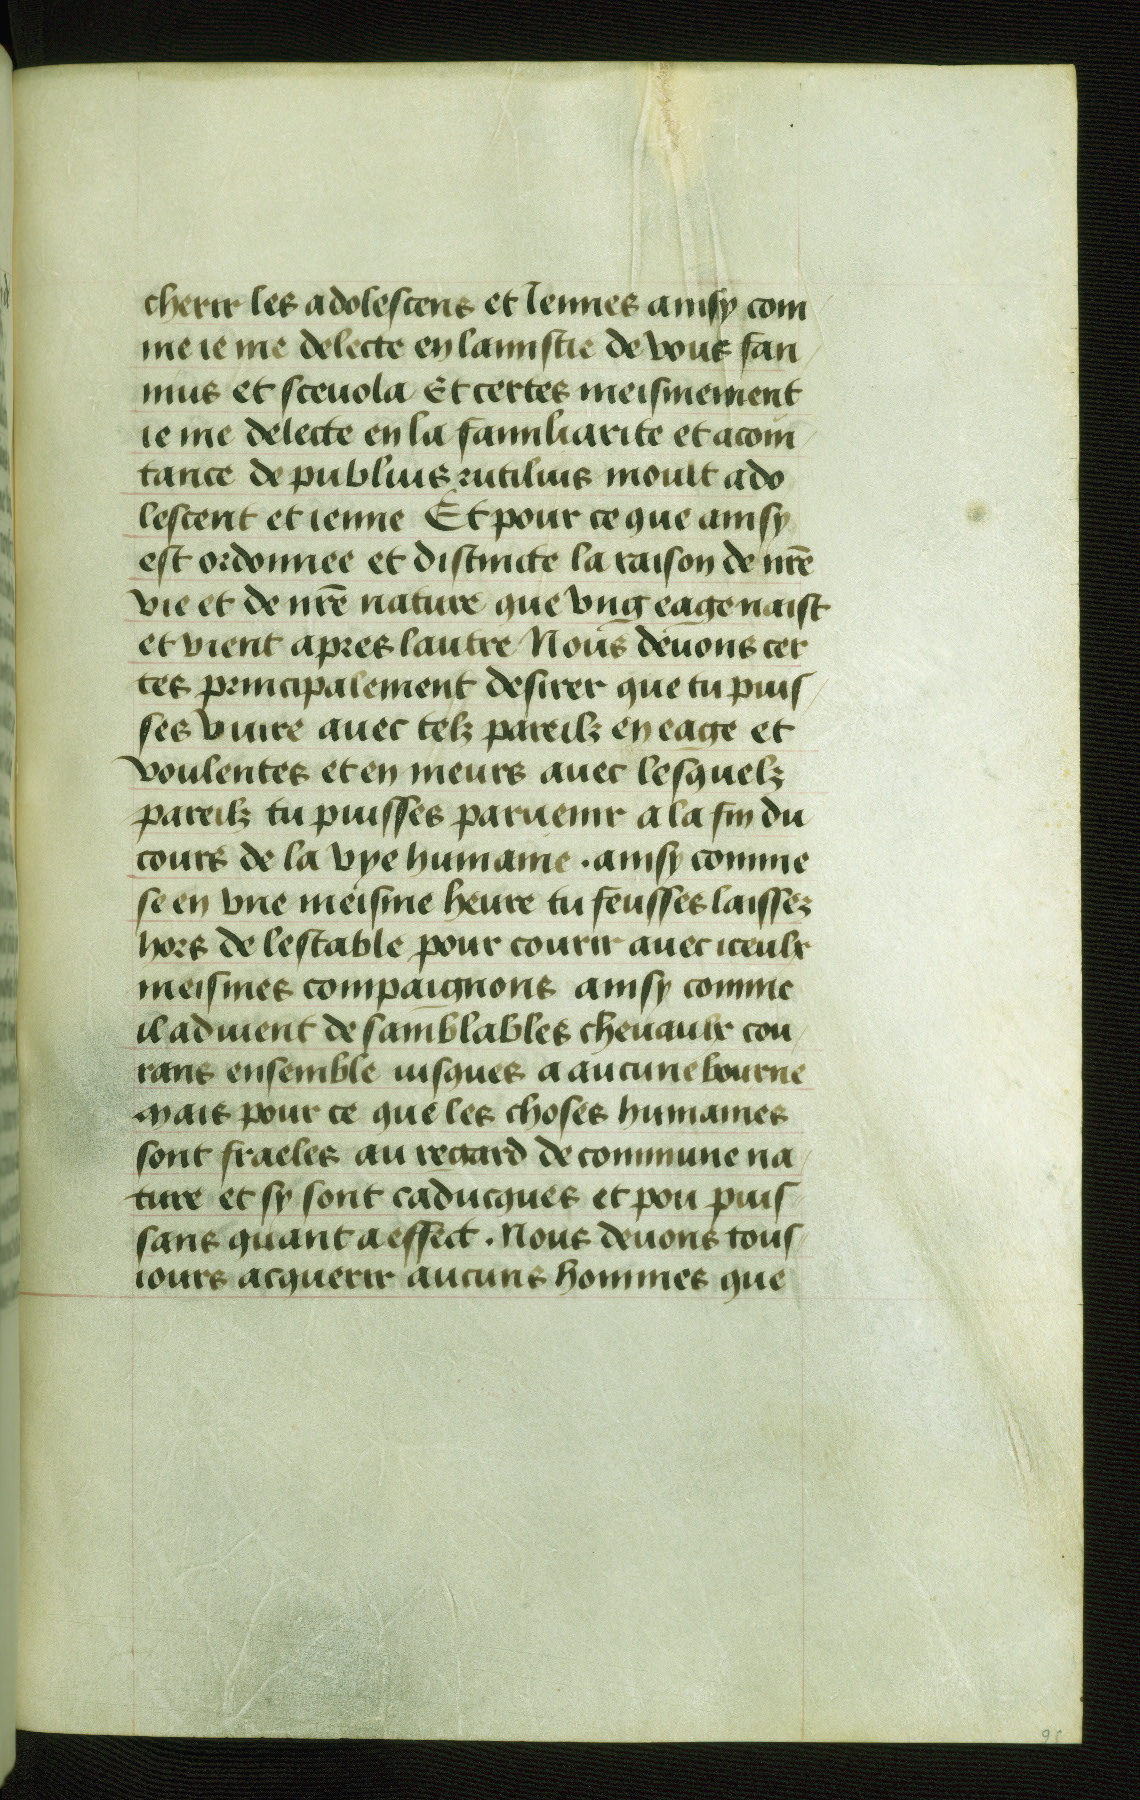 cherir les adolescens et Iennes ainsy com
me ie me delecte en lamistie de vous fan
nius et sceuola Et certes meismement
ie me delecte en la familiarite et acoin
tance de publius rutilius moult ado
lescent et ienne Et pour ce que ainsy
est ordonnee et distincte la raison de nr̄e
vie et de nr̄e nature que vng eage naist
et vient apres lautre Nous deuons cer
tes principalement desirer que tu puis
ses viure auec telz pareilz en eage et
voulentes et en meurs auec lesquelz
pareilz tu puisses paruenir a la fin du
cours de la vye humaine . ainsy comme
se en vne meisme heure tu feusses laissez
hors de lestable pour courir auec iceulx
meismes compaignons ainsy comme
il aduient de samblables cheuaulx cou
rans ensemble iusques a aucune bourne
Mais pour ce que les choses humaines
sont fraeles au regard de commune na
ture et sy sont caducques et pou puis
sans quant a effect . Nous deuons tous
iours acquerir aucuns hommes que